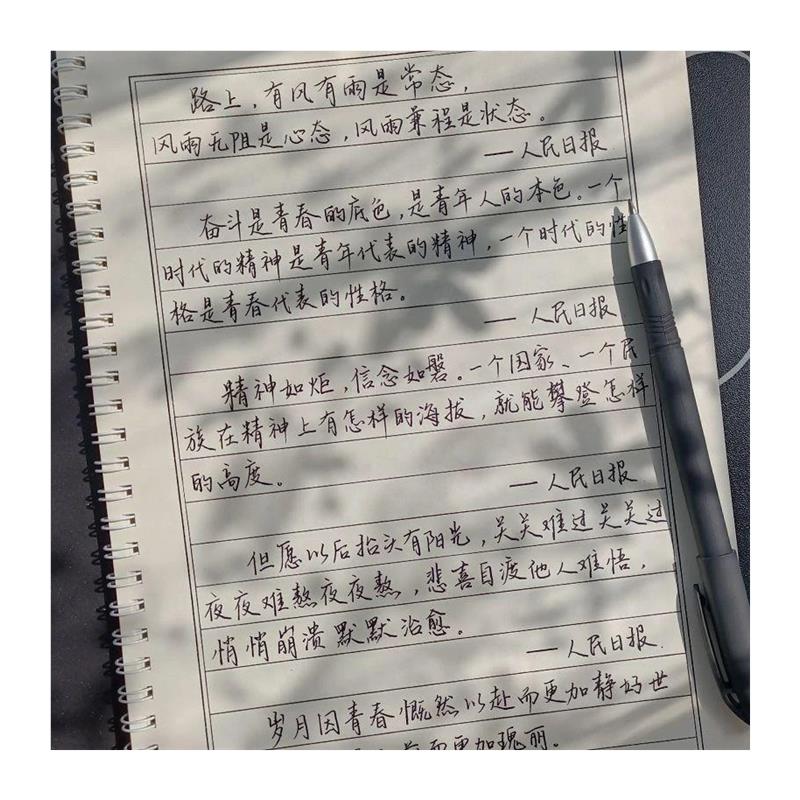 路上，有风有雨是常态，
风雨无阻是心态，风雨兼程是状态。
——人民日报
奋斗是青春的底色，是青年人的本色。一个
时代的精神是青年代表的精神，一个时代的性
格是青春代表的性格。
——人民日报
精神如炬，信念如磐。一个国家、一个民
族在精神上有怎样的海拔，就能攀登怎样
的高度。
——人民日报
但愿以后抬头有阳光，关关难过关关过
夜夜难熬夜夜熬，悲喜自渡他人难悟，
悄悄崩溃默默治愈。
——人民日报.
岁月因青春慨然以赴而更加静好世
而更加瑰丽。